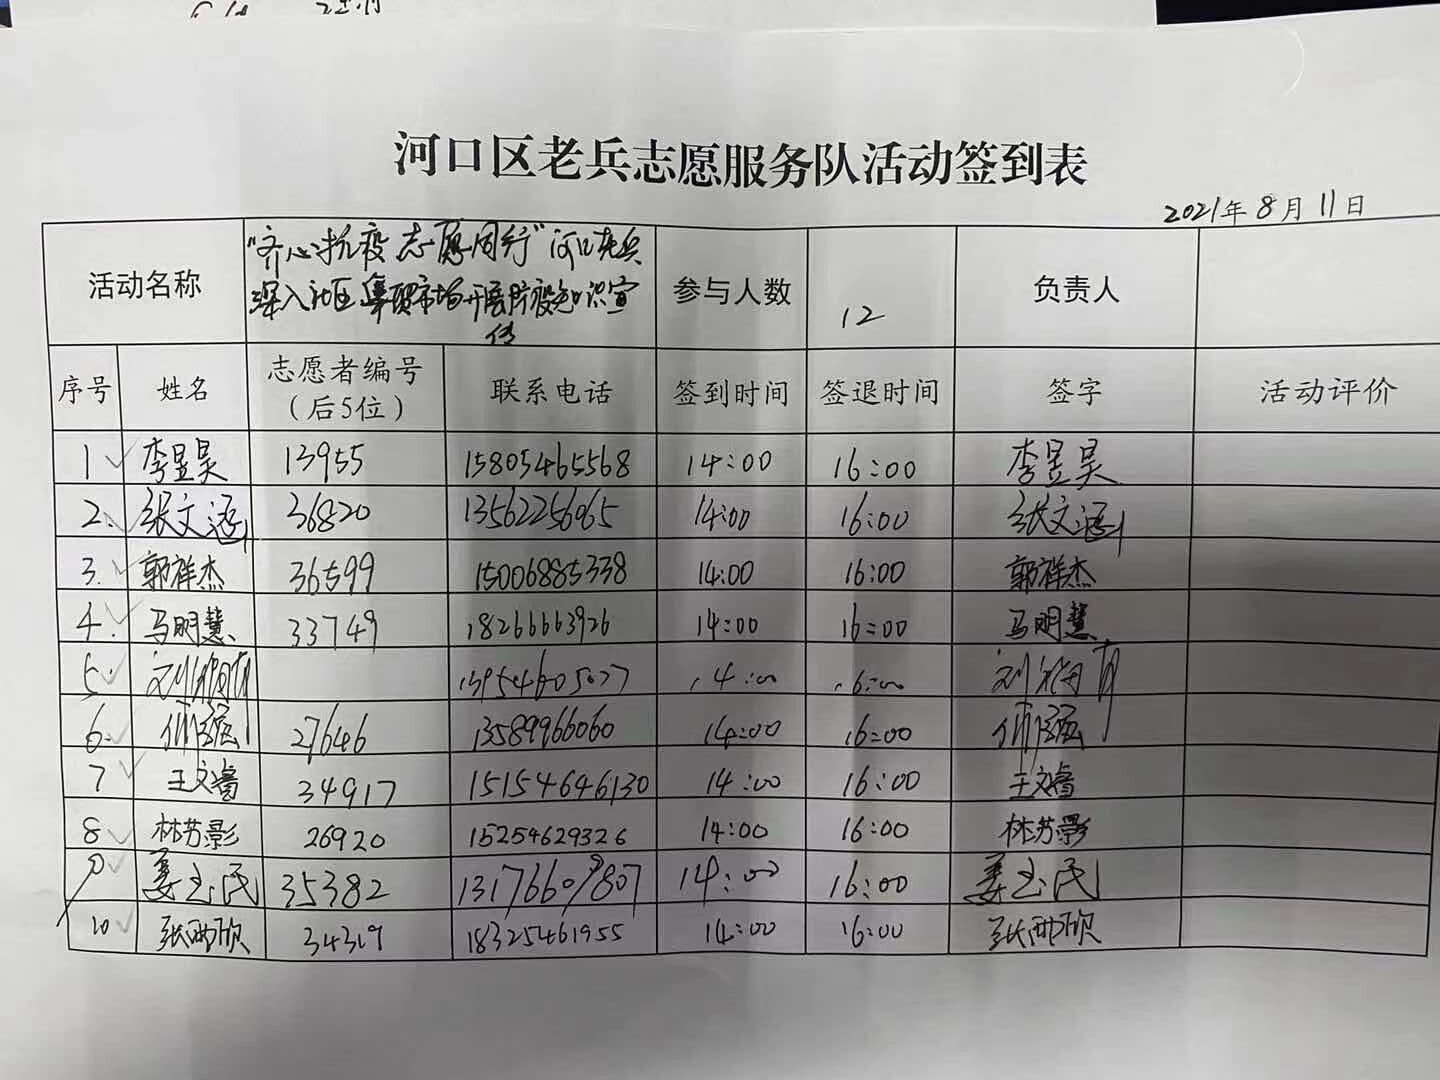 河口区老兵志愿服务队活动签到表
2021年8月11日
活动名称 "齐心抗疫 志愿同行"河口老兵 参与人数 12 负责人
深入社区、集贸市场开展防疫知识宣
传
序号 姓名 志愿者编号（后5位） 联系电话 签到时间 签退时间 签字 活动评价
1 李昱昊 13955 15805465568 14:00 16:00 李昱昊
2. 张文涵 36820 13562256965 14:00 16:00 张文涵
3. 郭祥杰 36599 15006885338 14:00 16:00 郭祥杰
4. 马明慧 33749 18266663926 14:00 16:00 马明慧
5 刘 13954605077 14:00 16:00 刘
6. 27646 13589966060 14:00 16:00
7 王文睿 34917 15154646130 14:00 16:00 王文睿
8 林苏影 26920 15254629326 14:00 16:00 林苏影
9 姜玉民 35382 13176609807 14:00 16:00 姜玉民
10 张雨欣 34319 18325461955 14:00 16:00 张雨欣